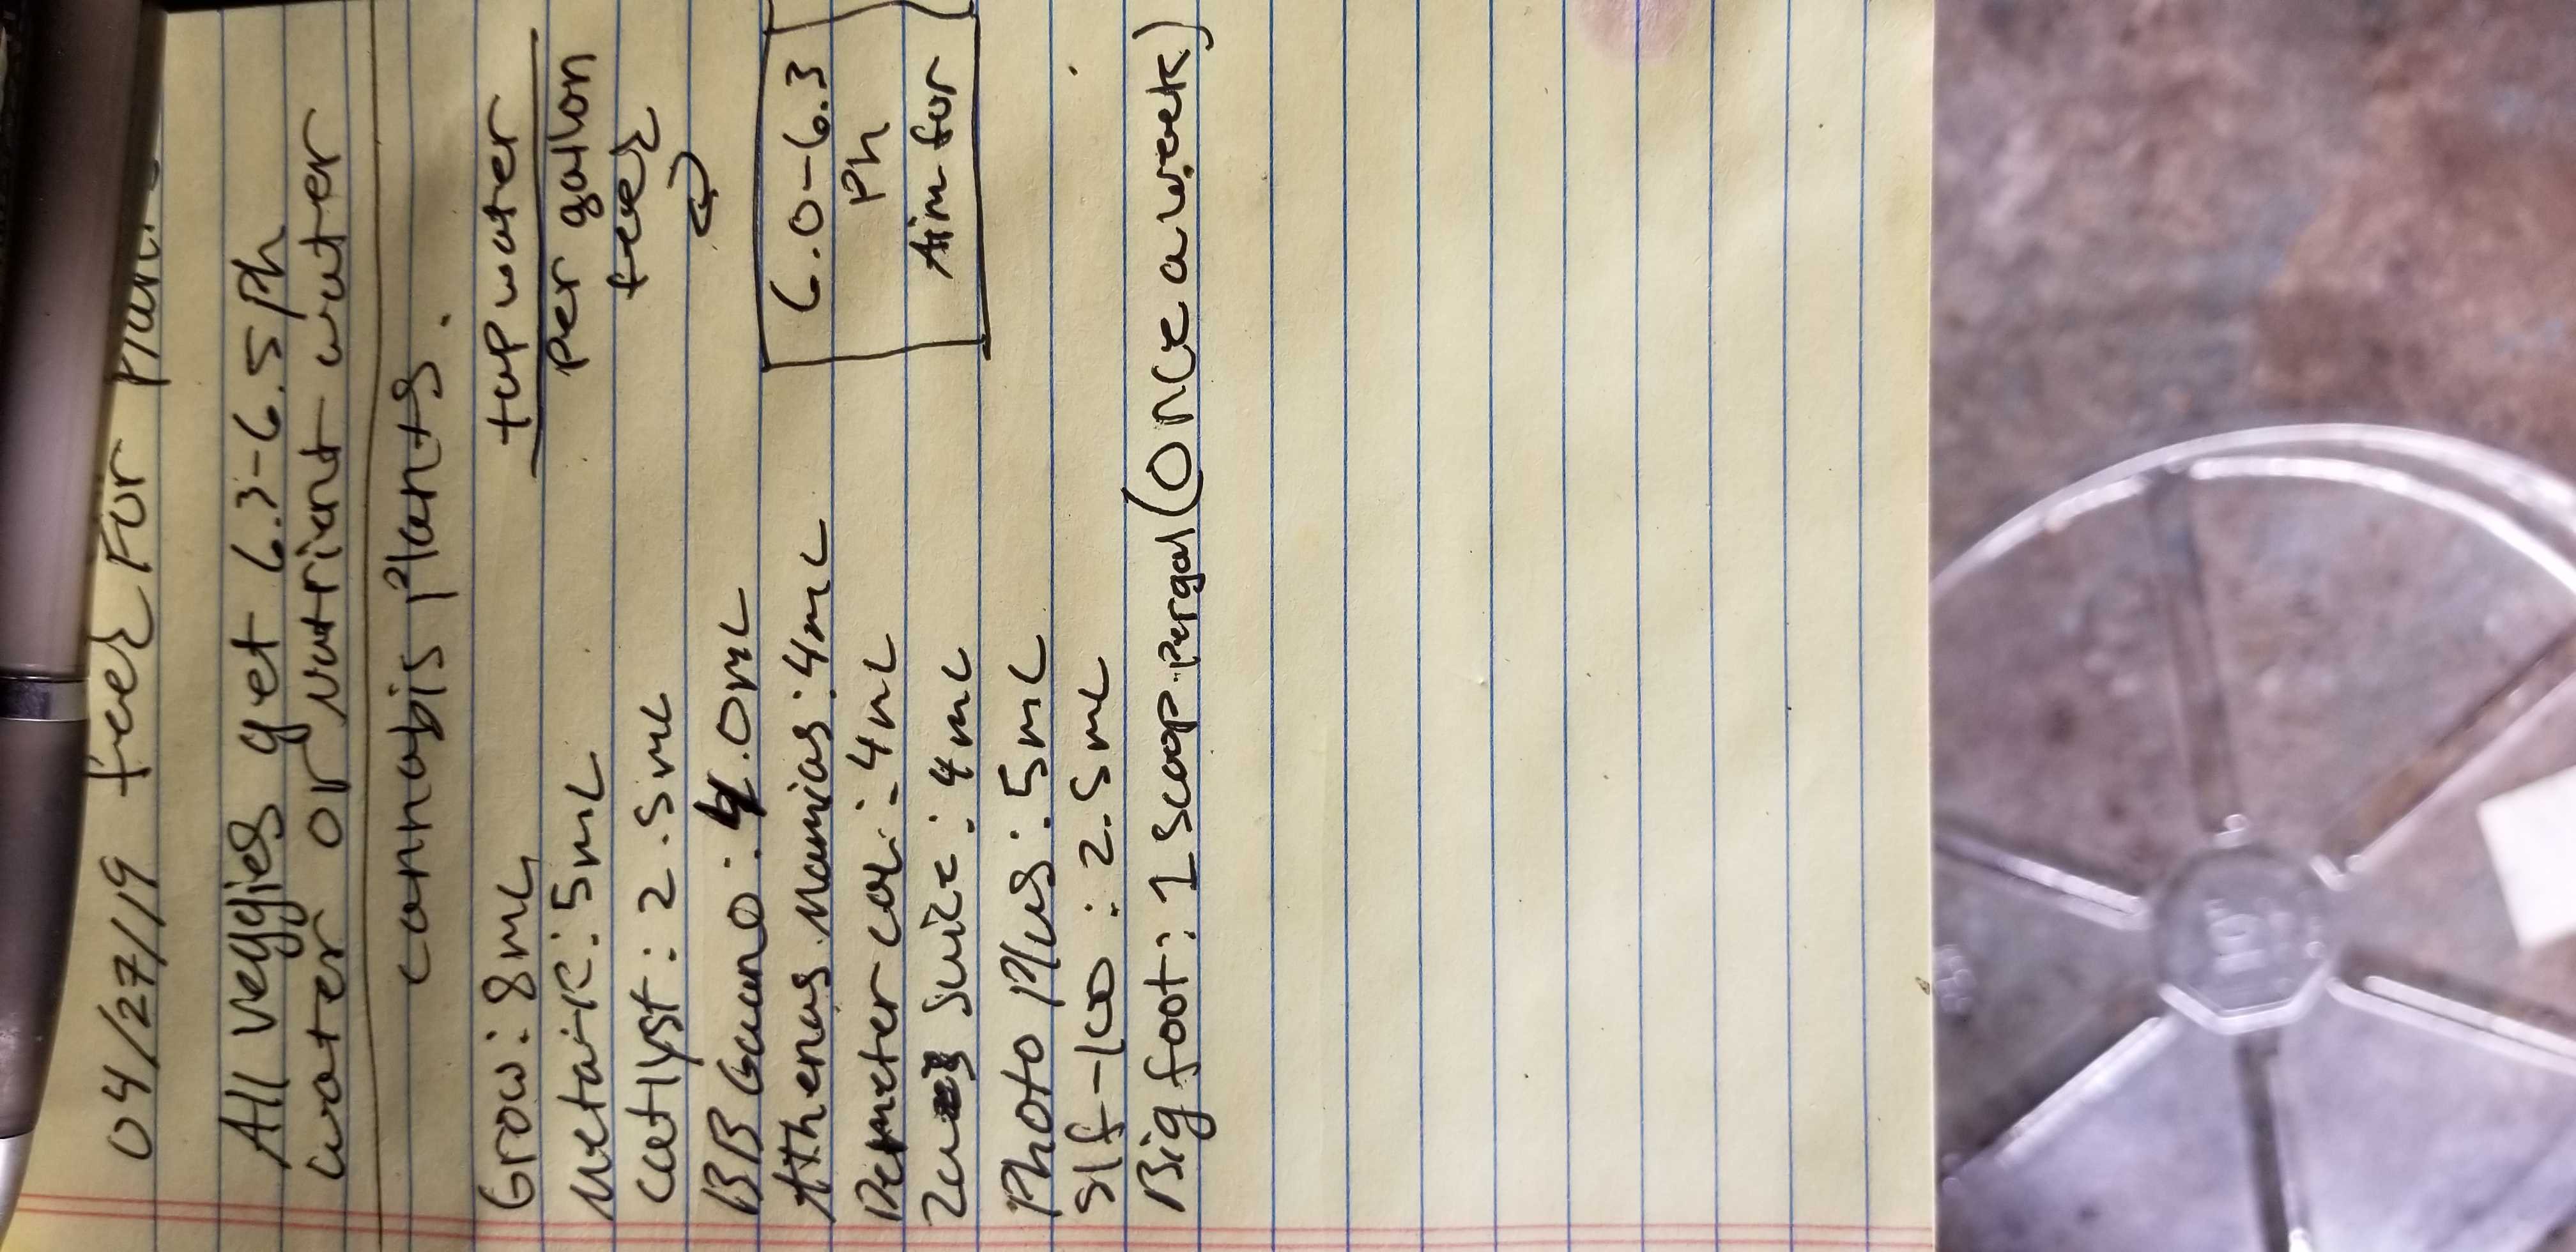 04/27/19 feed For Plants
All veggies get 6.3-6.5 Ph
water or nutrient water
cannabis Plants.
Grow: 8mL
tap water
Metai-K: 5mL
Per gallon
Catlyst: 2.5mL
feed
BB Guano: 4.0mL
Athenas Manias: 4mL
6.0-6.3
Demeter cal: 4mL
Ph
Zeus Juice: 4mL
Aim for
Photo Plus: 5mL
Slf-100: 2.5mL
Big foot: 1 Scoop Pergal (Once a week)